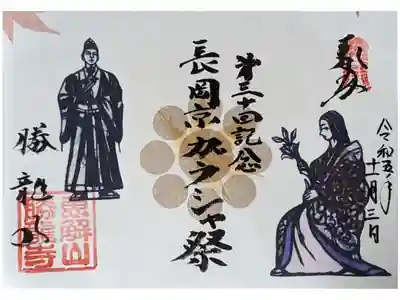 奉拝
令和五年
十一月三日
第三十回記念
長岡京ガラシャ祭
勝龍寺
恵解山
勝龍寺